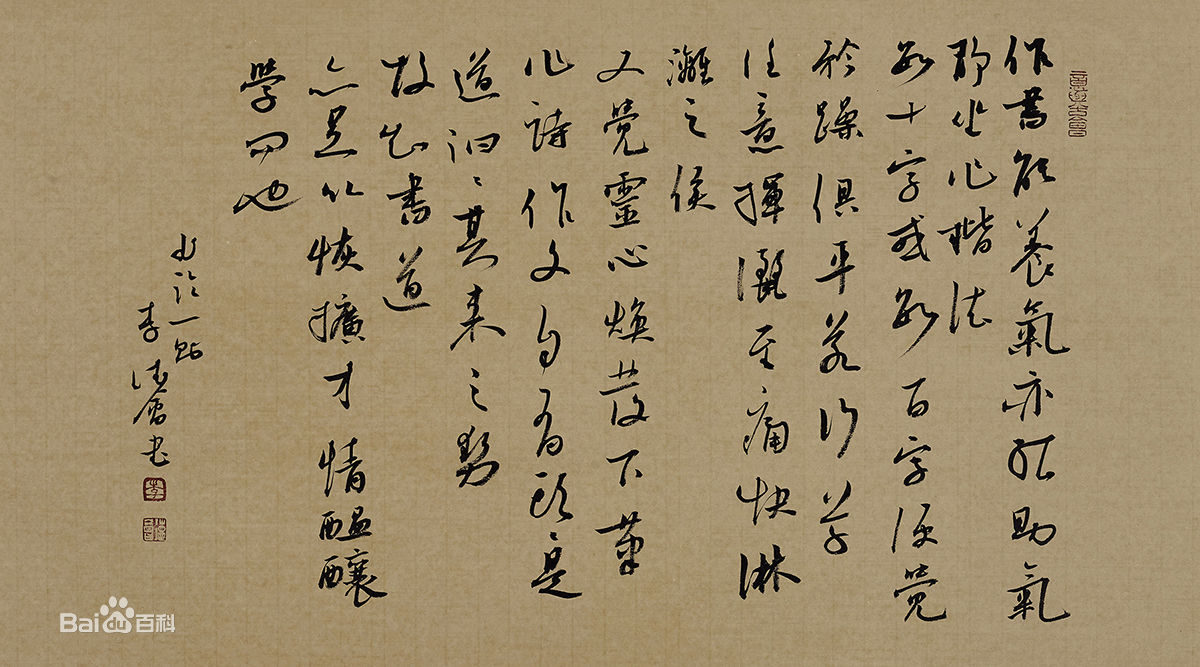 作書能養氣亦能助氣
靜坐作楷法
數十字或數百字便覺
矜躁俱平若行草
任意揮灑至痛快淋
漓之候
又覺靈心煥發下筆
作詩作文自有頭〻是
道汩〻其來之勢
故知書道
亦足以恢擴才情醞釀
學問也
书论一贴
李 书
Bai du 百科